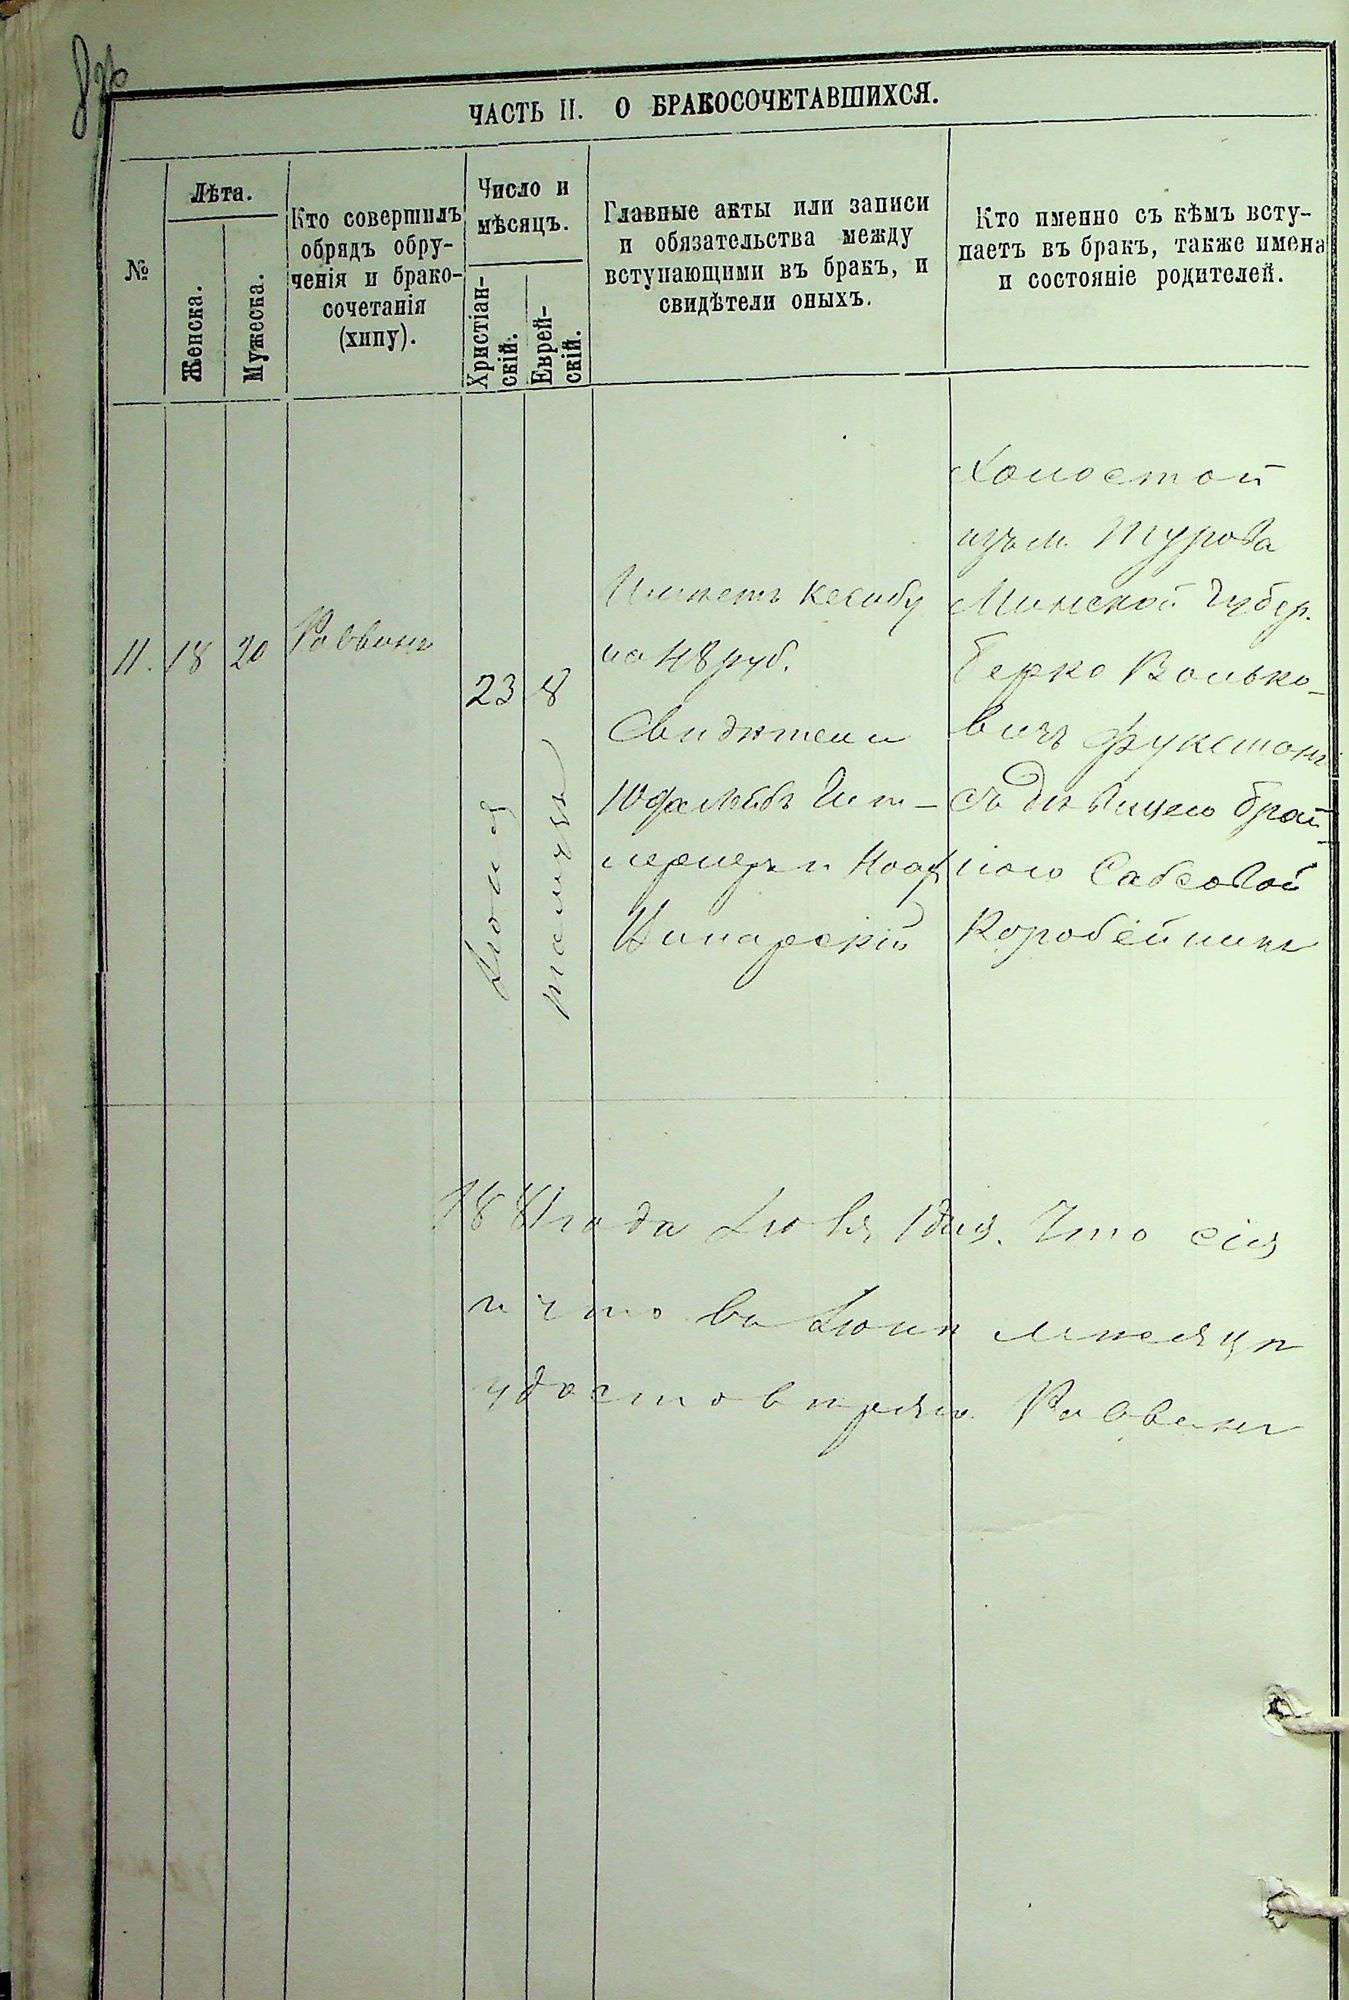 ЧАСТЬ II. О БРАКОСОЧЕТАВШИХСЯ.
№
Лѣта.
Женска.
Мужеска.
Кто совершилъ
обрядъ обру-
ченія и брако-
сочетанія
(хипу).
Число и
мѣсяцъ.
Христіан-
скій.
Еврей-
скій.
Главные акты или записи
и обязательства между
вступающими въ бракъ, и
свидѣтели оныхъ.
Кто именно съ кѣмъ всту-
паетъ въ бракъ, также имена
и состояніе родителей.
11.
18
20
Раввинъ
23
Іюня
8
тамузъ
на 48 руб.
Свидѣтели
Цинарскій
Холостой
изъ м. Турова
Минской Губер.
Берко Волько-
вичъ Фуксманъ
съ дѣвицею
Коробейникъ
1881 года Іюля 1 дня. Что сія
и что въ Іюнѣ мѣсяцѣ
удостовѣряю Раввинъ